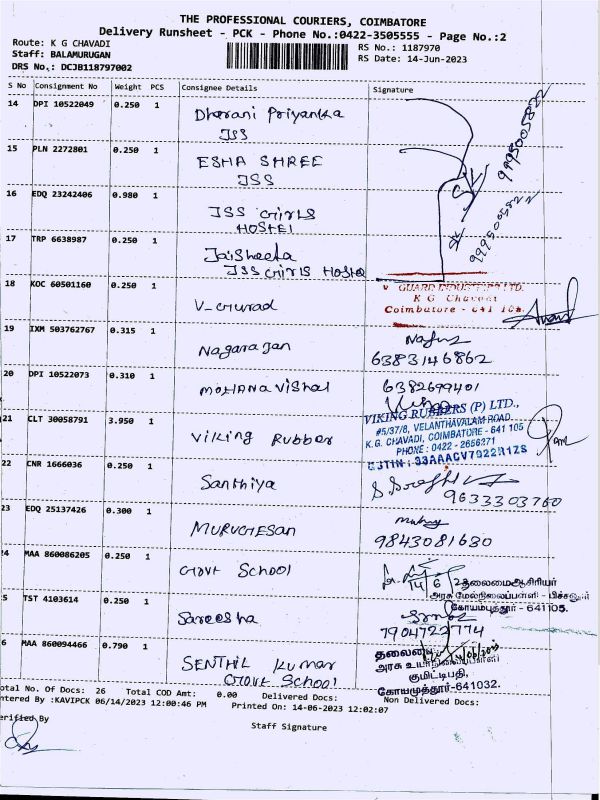 THE PROFESSIONAL COURIERS, COIMBATORE
Delivery Runsheet - PCK - Phone No.:0422-3505555 - Page No.:2
Route: K G CHAVADI
RS No.: 1187970
Staff: BALAMURUGAN
RS Date: 14-Jun-2023
DRS No.: DCJB118797002
S No Consignment No Weight PCS Consignee Details Signature
14 DPI 10522049 0.250 1 Dharani Priyanka
JSS
9995005822
15 PLN 2272801 0.250 1 ESHA SHREE
JSS
16 EDQ 23242406 0.980 1 JSS Girls
HOSTEL
9995005822
17 TRP 6638987 0.250 1 Jaisheela
JSS GIRLS HOSTEL
18 KOC 60501160 0.250 1 V-Gurad
V GUARD INDUSTRIES LTD.
K G Chavadi
Coimbatore - 641 105.
Anand
19 IXM 503762767 0.315 1 Nagarajan
6383146862
20 DPI 10522073 0.310 1 MOHANA Vishal
6382699401
21 CLT 30058791 3.950 1 Viking Rubber
VIKING RUBBERS (P) LTD.,
#5/37/8, VELANTHAVALAM ROAD,
K.G. CHAVADI, COIMBATORE - 641 105
PHONE : 0422 - 2656271
GSTIN : 33AAACV7922R1ZS
22 CNR 1666036 0.250 1 Santhiya
9633303760
23 EDQ 25137426 0.300 1 MURUGESAN
9843081680
24 MAA 860086205 0.250 1 Govt School
14/6
தலைமைஆசிரியர்
அரசு மேல்நிலைப்பள்ளி - பிச்சனூர்
கோயம்புத்தூர் - 641105.
5 TST 4103614 0.250 1 Sareesha
7904722774
6 MAA 860094466 0.790 1 SENTHIL Kumar
Govt School
தலைமை
அரசு உயர்நிலைப்பள்ளி
குமிட்டிபதி,
கோயமுத்தூர்-641032.
otal No. Of Docs: 26 Total COD Amt: 0.00 Delivered Docs: Non Delivered Docs:
ntered By :KAVIPCK 06/14/2023 12:00:46 PM Printed On: 14-06-2023 12:02:07
erified By
Staff Signature